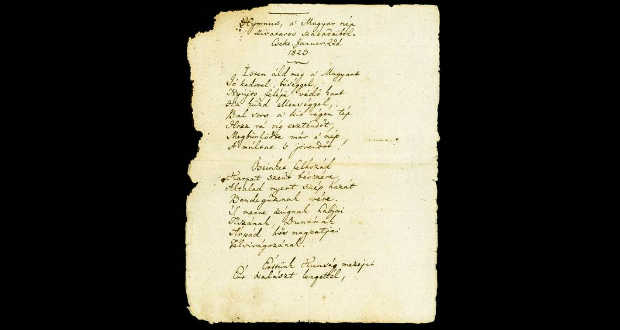 Hymnus, a' Magyar nép
zivataros századaiból.
Cseke, Januar. 22d
1823.
Isten áldd meg a' Magyart
Jó kedvvel, bőséggel,
Nyújts feléje védő kart
Ha küzd ellenséggel;
Bal sors a' kit régen tép
Hozz rá víg esztendőt,
Megbünhödte már e' nép
A' multat 's jövendőt.
Őseinket felhozád
Kárpát szent bérczére,
Általad nyert szép hazát
Bendegúznak vére.
'S merre zúgnak habjai
Tiszának, Dunának,
Árpád hős magzatjai
Felvirágozának.
Értünk Kunság mezejin
Ért kalászt lengettél,